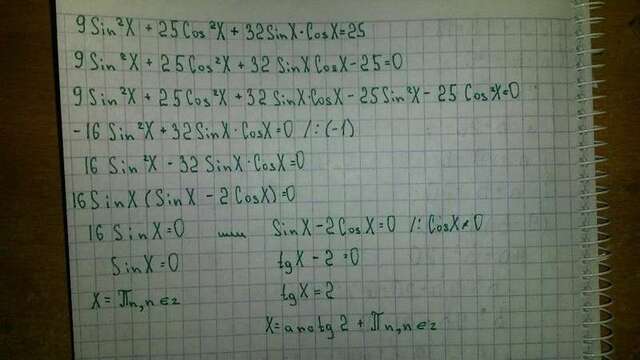 9Sin²X + 25Cos²X + 32SinX·CosX=25
9Sin²X + 25Cos²X + 32 SinXCosX-25=0
9Sin²X + 25Cos²X + 32 SinX·CosX - 25Sin²X - 25 Cos²X=0
-16 Sin²X + 32SinX·CosX=0 /:(-1)
16 Sin²X - 32 SinX·CosX=0
16SinX(SinX - 2CosX)=0
16 SinX=0 или SinX-2CosX=0 /:CosX≠0
SinX=0 tgX-2=0
X=πn,n∈z tgX=2
X=arctg2 + πn,n∈z